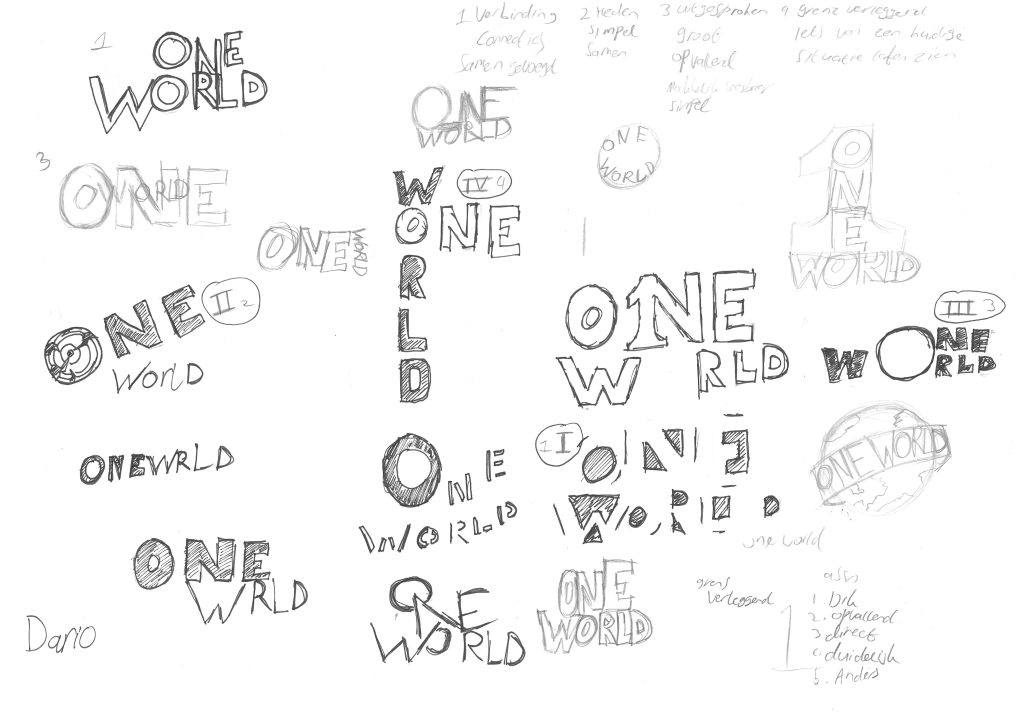 1 Verbinding
Connected
Samen gevoegd
2 Heden
Simpel
Samen
3 uitgesproken
groot
opvallend
Makkelijk leesbaar
simpel
4 grens verleggend
Iets van een huidige
situatie laten zien
1
ONE
WORLD
ONE
WORLD
ONE
WORLD
ONE
WORLD
3
ONE
WORLD
WORLD
ONE
IV 4
ONE
WORLD
II 2
ONE
World
ONE
W RLD
III 3
W O NE
RLD
ONEWRLD
ONE
WORLD
1 I
ONE
WORLD
ONE WORLD
one world
ONE
WRLD
ONE
WORLD
ONE
WORLD
grens
verleggend
1
1. Dik
2. opvallend
3 direct
4 duidelijk
5. Anders
Dario